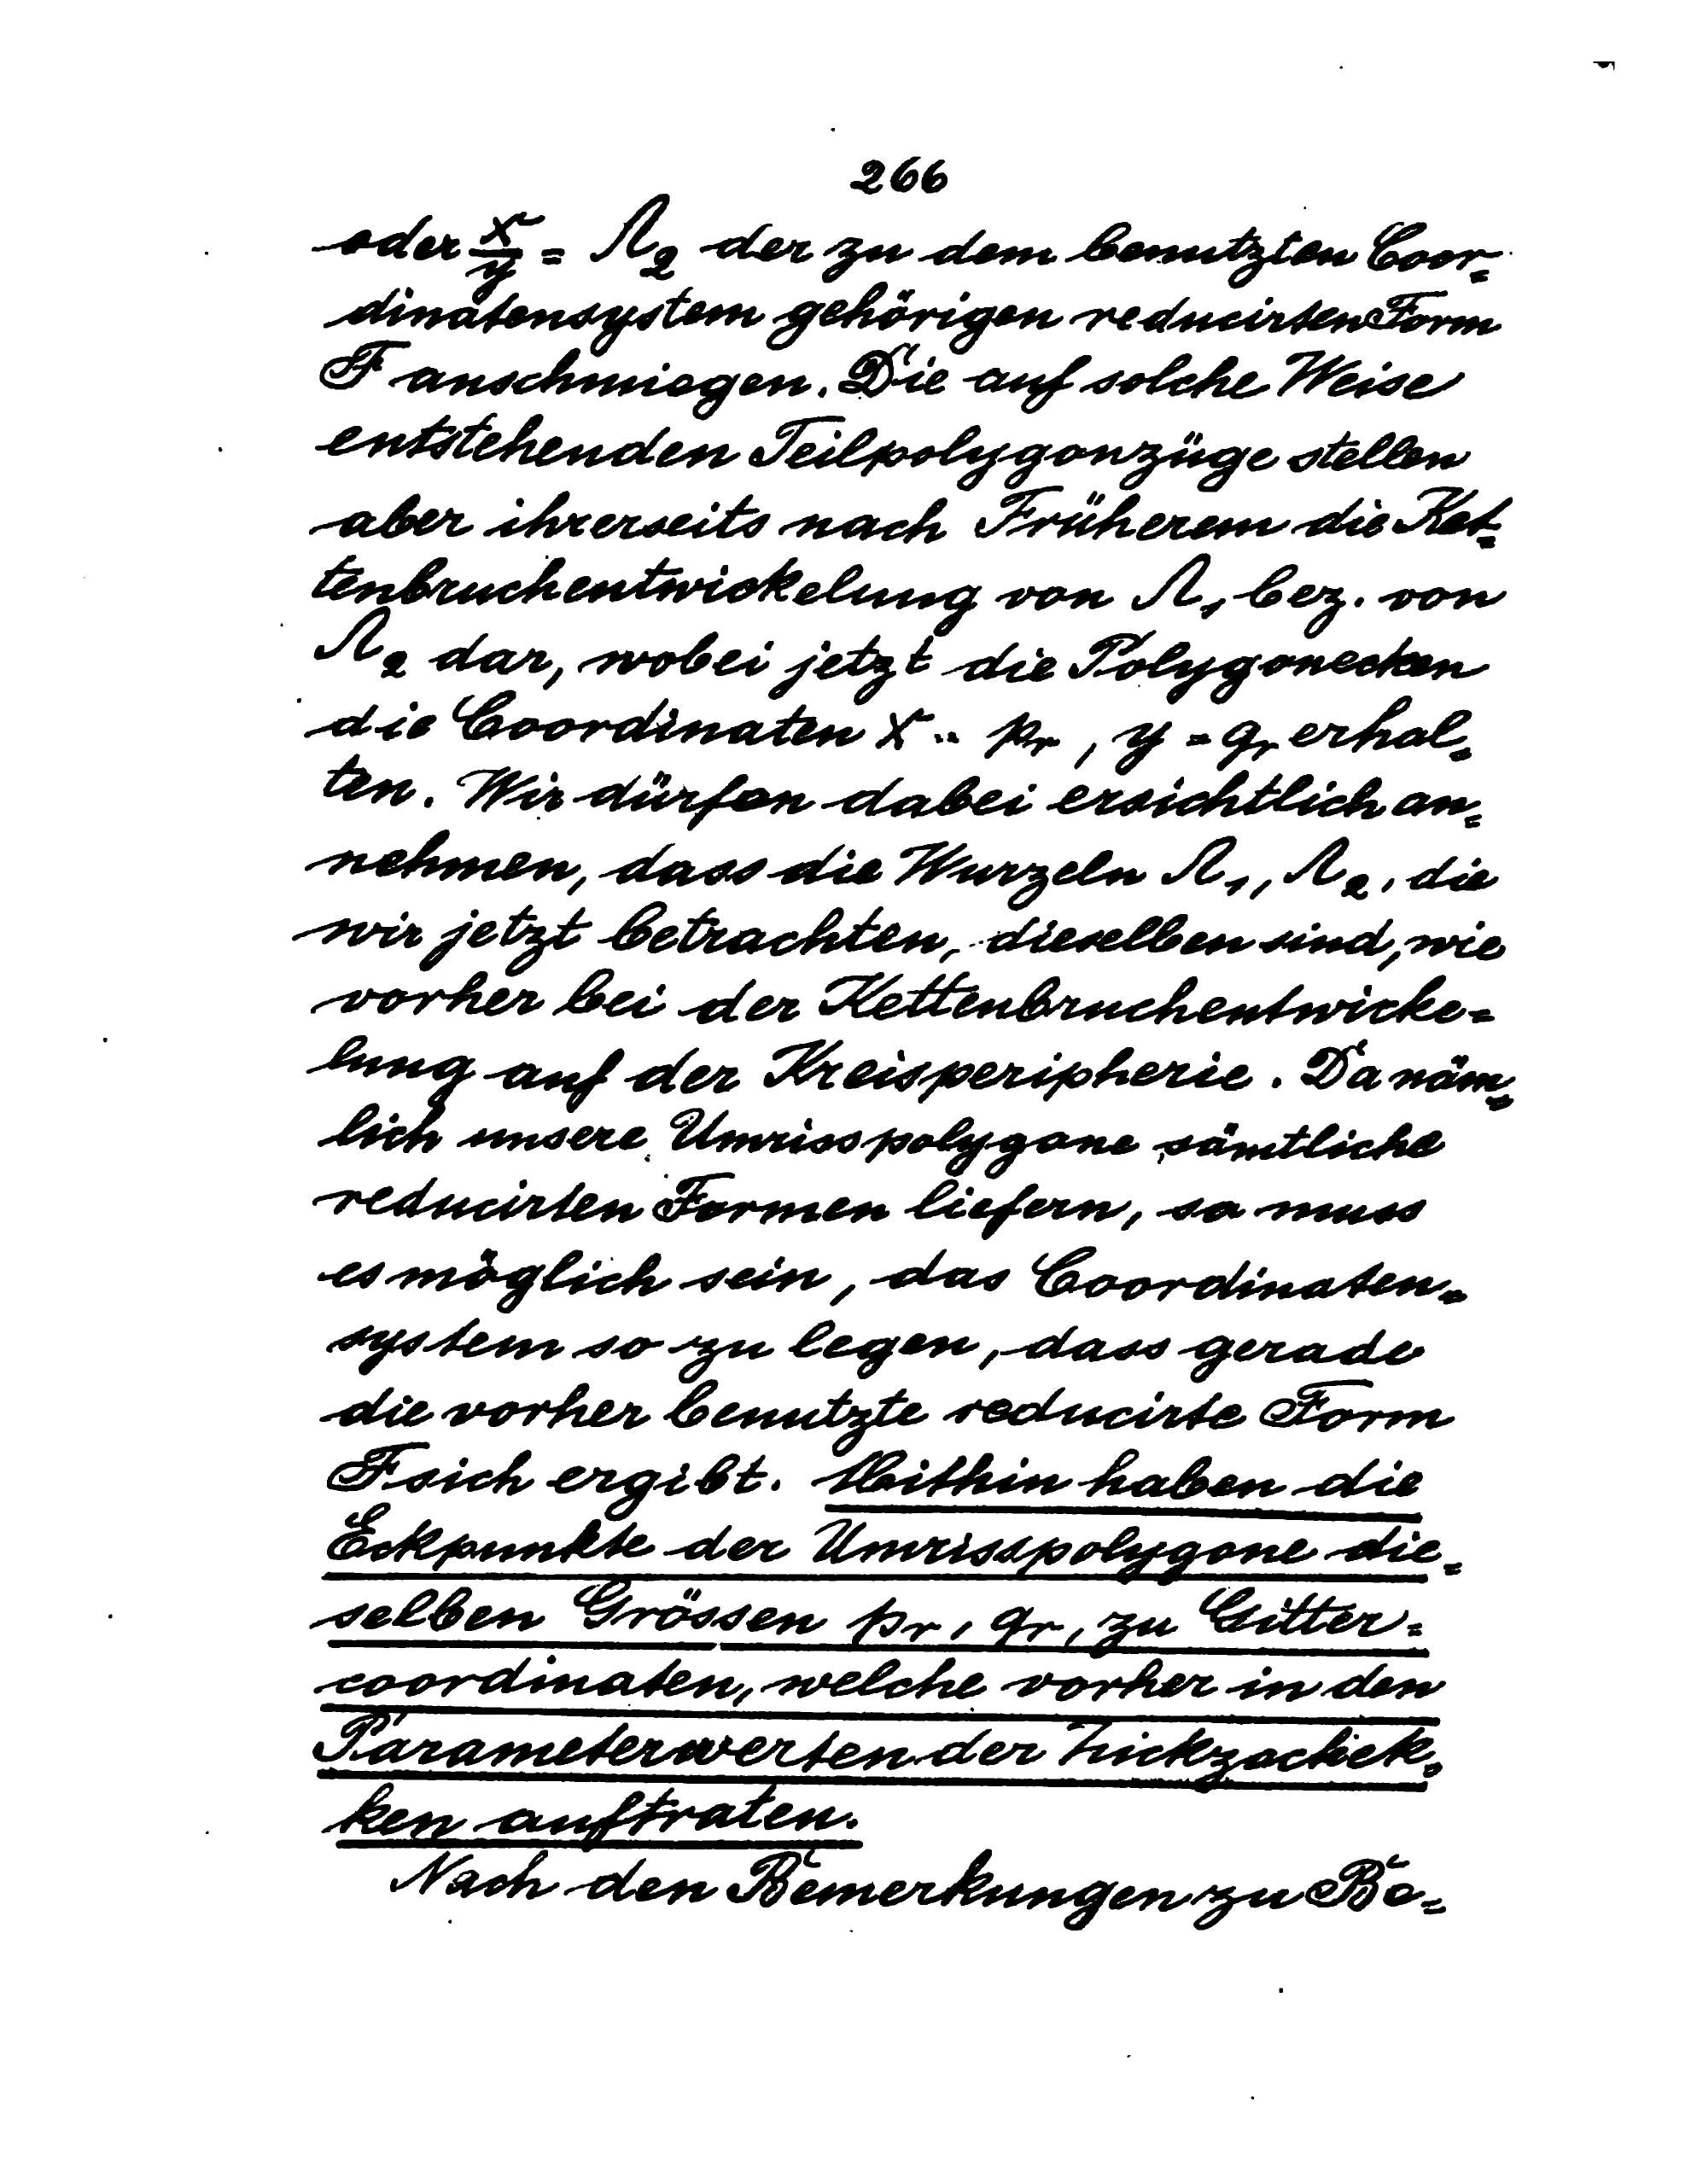 266
oder x/y = Λ₂ der zu dem benutzten Coor=
dinatensystem gehörigen reducirten Form
F anschmiegen. Die auf solche Weise
entstehenden Teilpolygonzüge stellen
aber ihrerseits nach Früherem die Ket=
tenbruchentwickelung von Λ₁ bez. von
Λ₂ dar, wobei jetzt die Polygonecken
die Coordinaten x = pᵣ, y = qᵣ erhal=
ten. Wir dürfen dabei ersichtlich an=
nehmen, dass die Wurzeln Λ₁, Λ₂, die
wir jetzt betrachten, dieselben sind, wie
vorher bei der Kettenbruchentwicke=
lung auf der Kreisperipherie. Da näm=
lich unsere Umrisspolygone sämtliche
reducirten Formen liefern, so muss
es möglich sein, das Coordinaten=
system so zu legen, dass gerade
die vorher benutzte reducirte Form
F sich ergibt. Mithin haben die
Eckpunkte der Umrisspolygone die=
selben Grössen pᵣ, qᵣ, zu Gitter=
coordinaten, welche vorher in den
Parameterwerten der Zickzackek=
ken auftraten.
Nach den Bemerkungen zu Be=